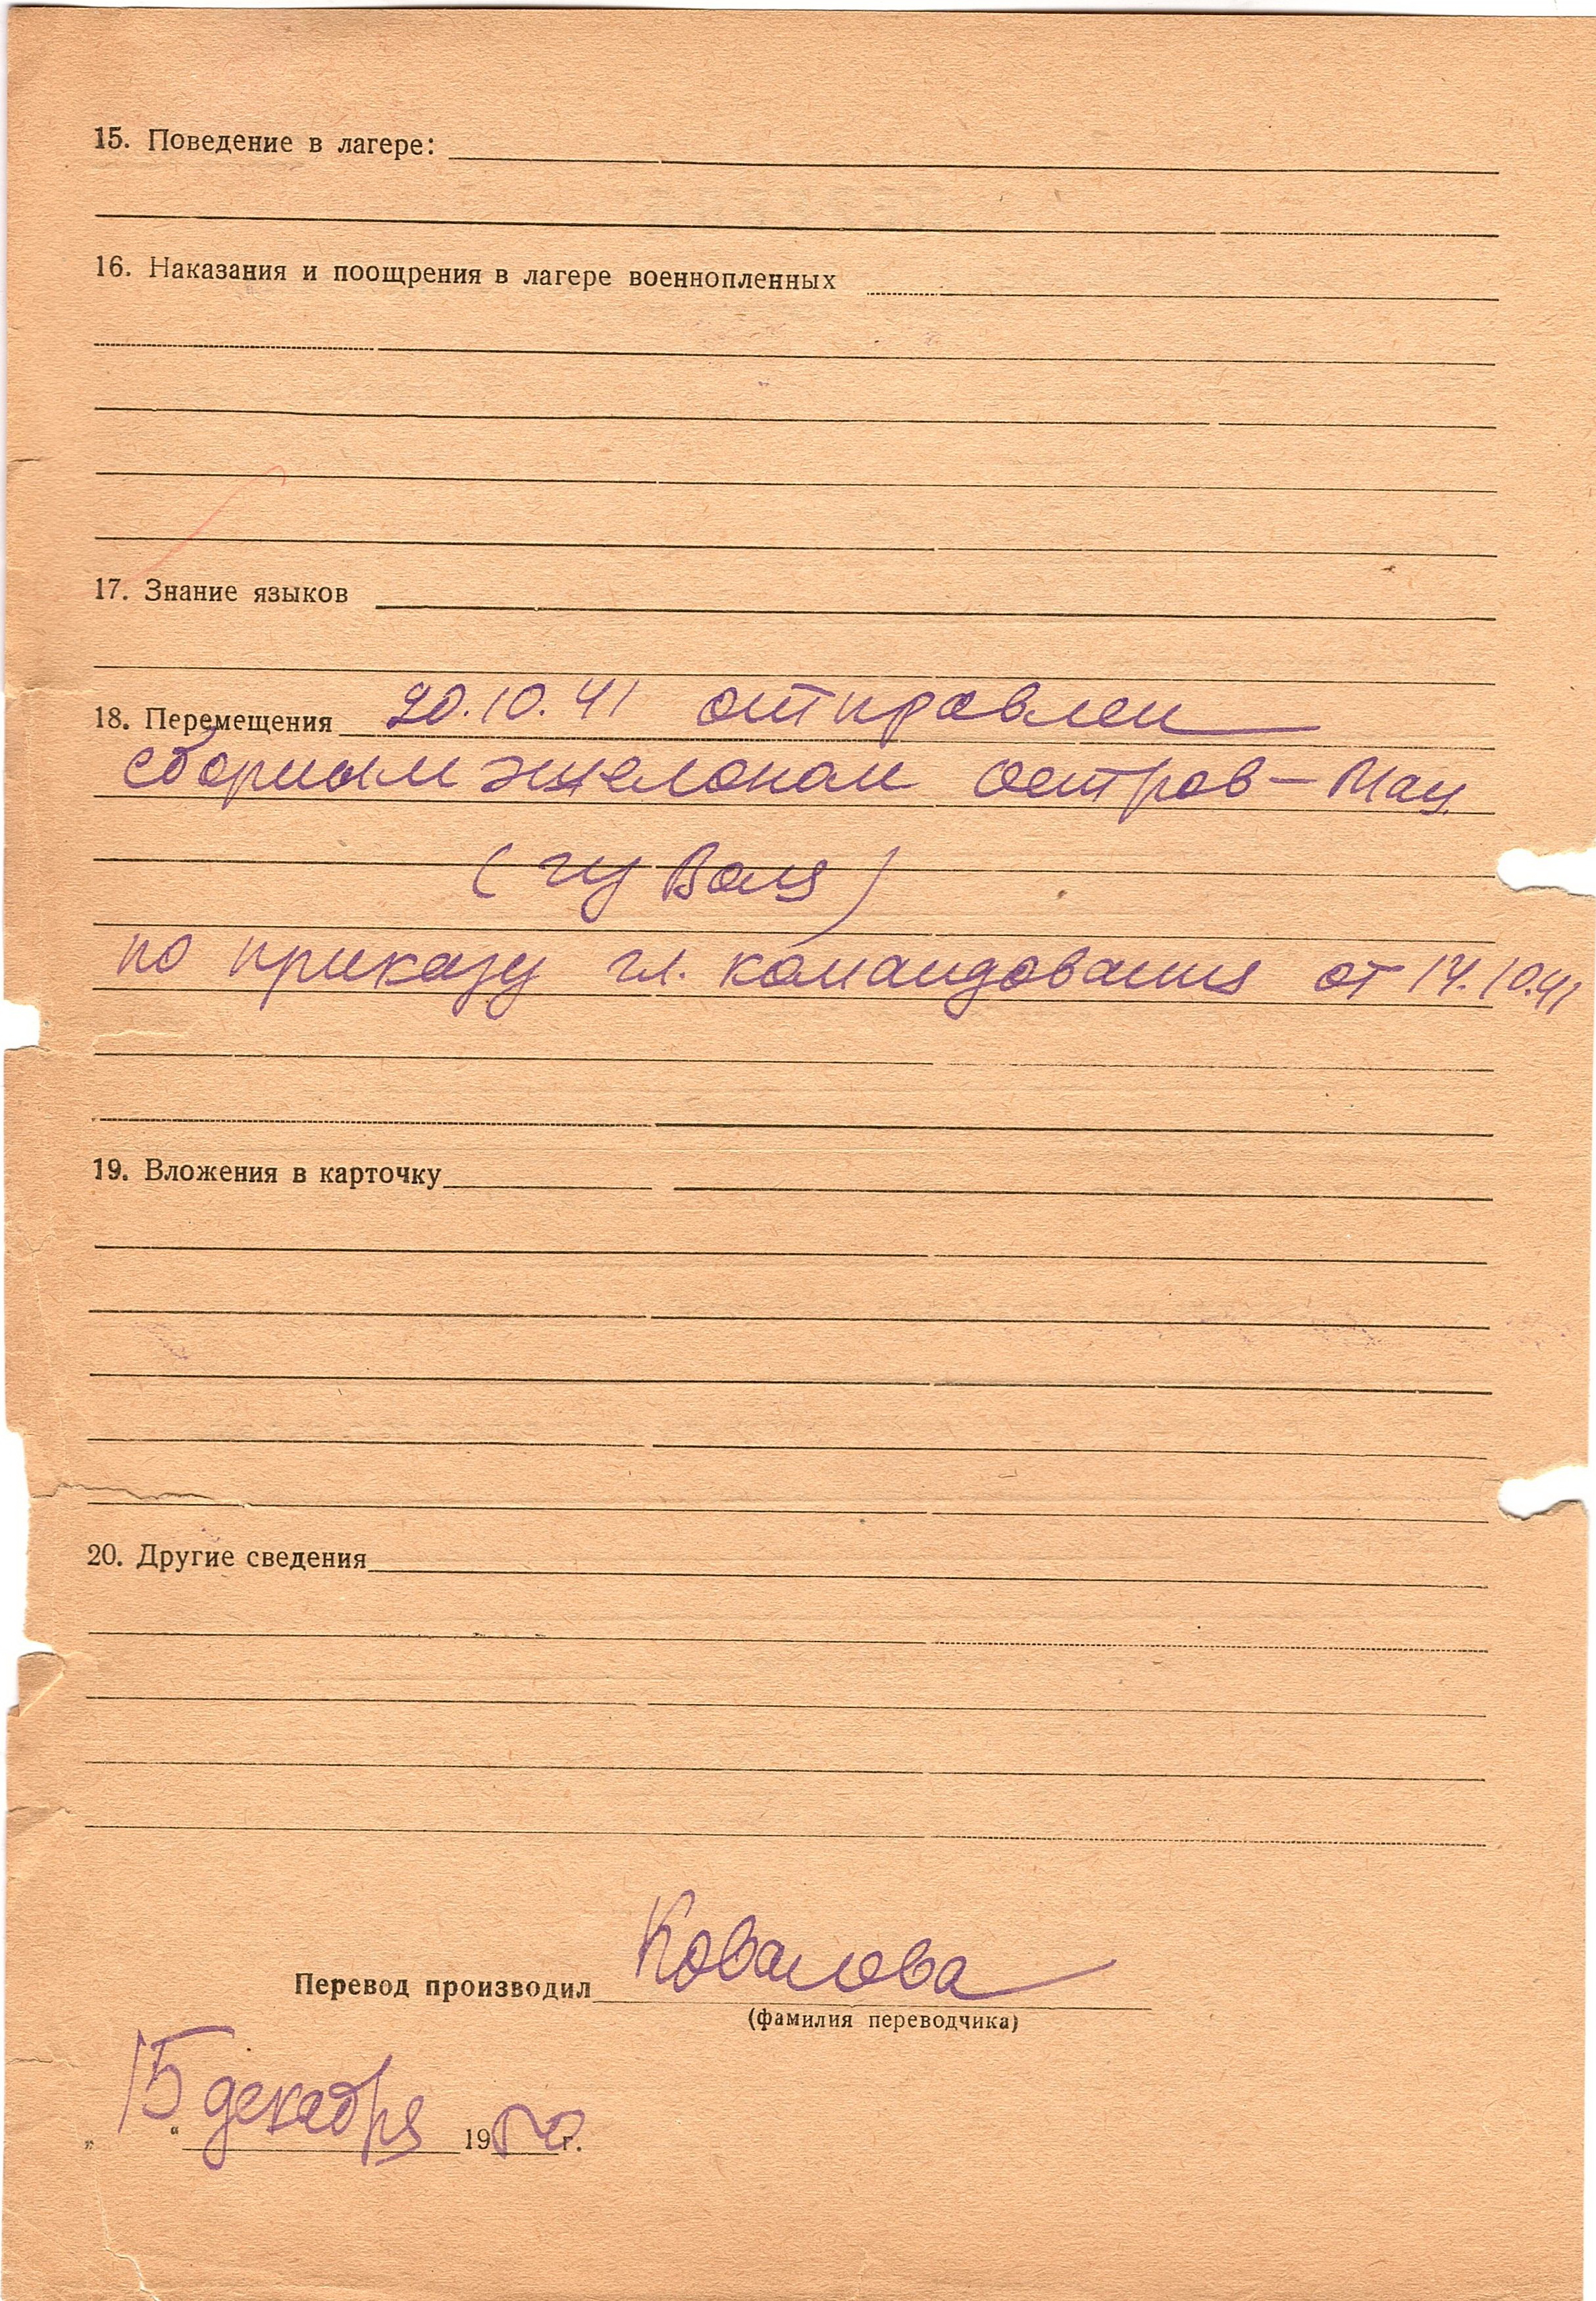 15. Поведение в лагере:
16. Наказания и поощрения в лагере военнопленных
17. Знание языков
18. Перемещения 20.10.41 отправлен
сборным эшелоном Остров-Маз.
по приказу гл. командования от 14.10.41
19. Вложения в карточку
20. Другие сведения
Перевод производил Ковалева
(фамилия переводчика)
„15“ декабря 1950 г.